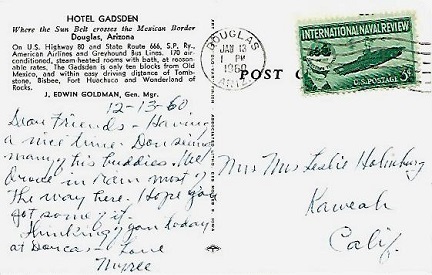 HOTEL GADSDEN
Where the Sun Belt crosses the Mexican Border
Douglas, Arizona
On U.S. Highway 80 and State Route 666, S.P. Ry.,
American Airlines and Greyhound Bus Lines. 170 air-
conditioned, steam-heated rooms with bath, at reason-
able rates. The Gadsden is only ten blocks from Old
Mexico, and within easy driving distance of Tomb-
stone, Bisbee, Fort Huachuco and Wonderland of
Rocks.
J. EDWIN GOLDMAN, Gen. Mgr.
12-13-60
Dear Friends - Having
a nice time. Don seeing
many of his buddies. We
drove in rain most of
the way here. Hope you
got some of it.
Thinking of you today
at Dorcas - Love
DOUGLAS
JAN 13
1 PM
1960
ARIZ.
POST C
INTERNATIONAL NAVAL REVIEW
U.S. POSTAGE 3¢
Mr Mrs Leslie
Kaweah
Calif.